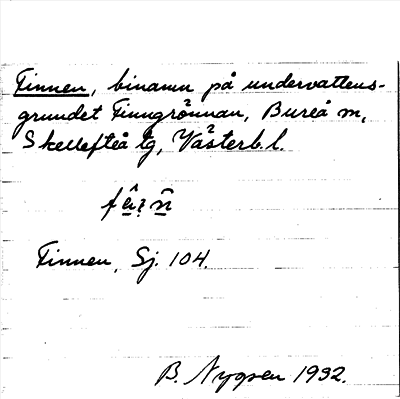 Finnen, binamn på undervattens-
grundet Finngrönnan, Bureå m,
Skellefteå tg, Västerb. l.
Finnen, Sj. 104.
B. Nygren 1932.